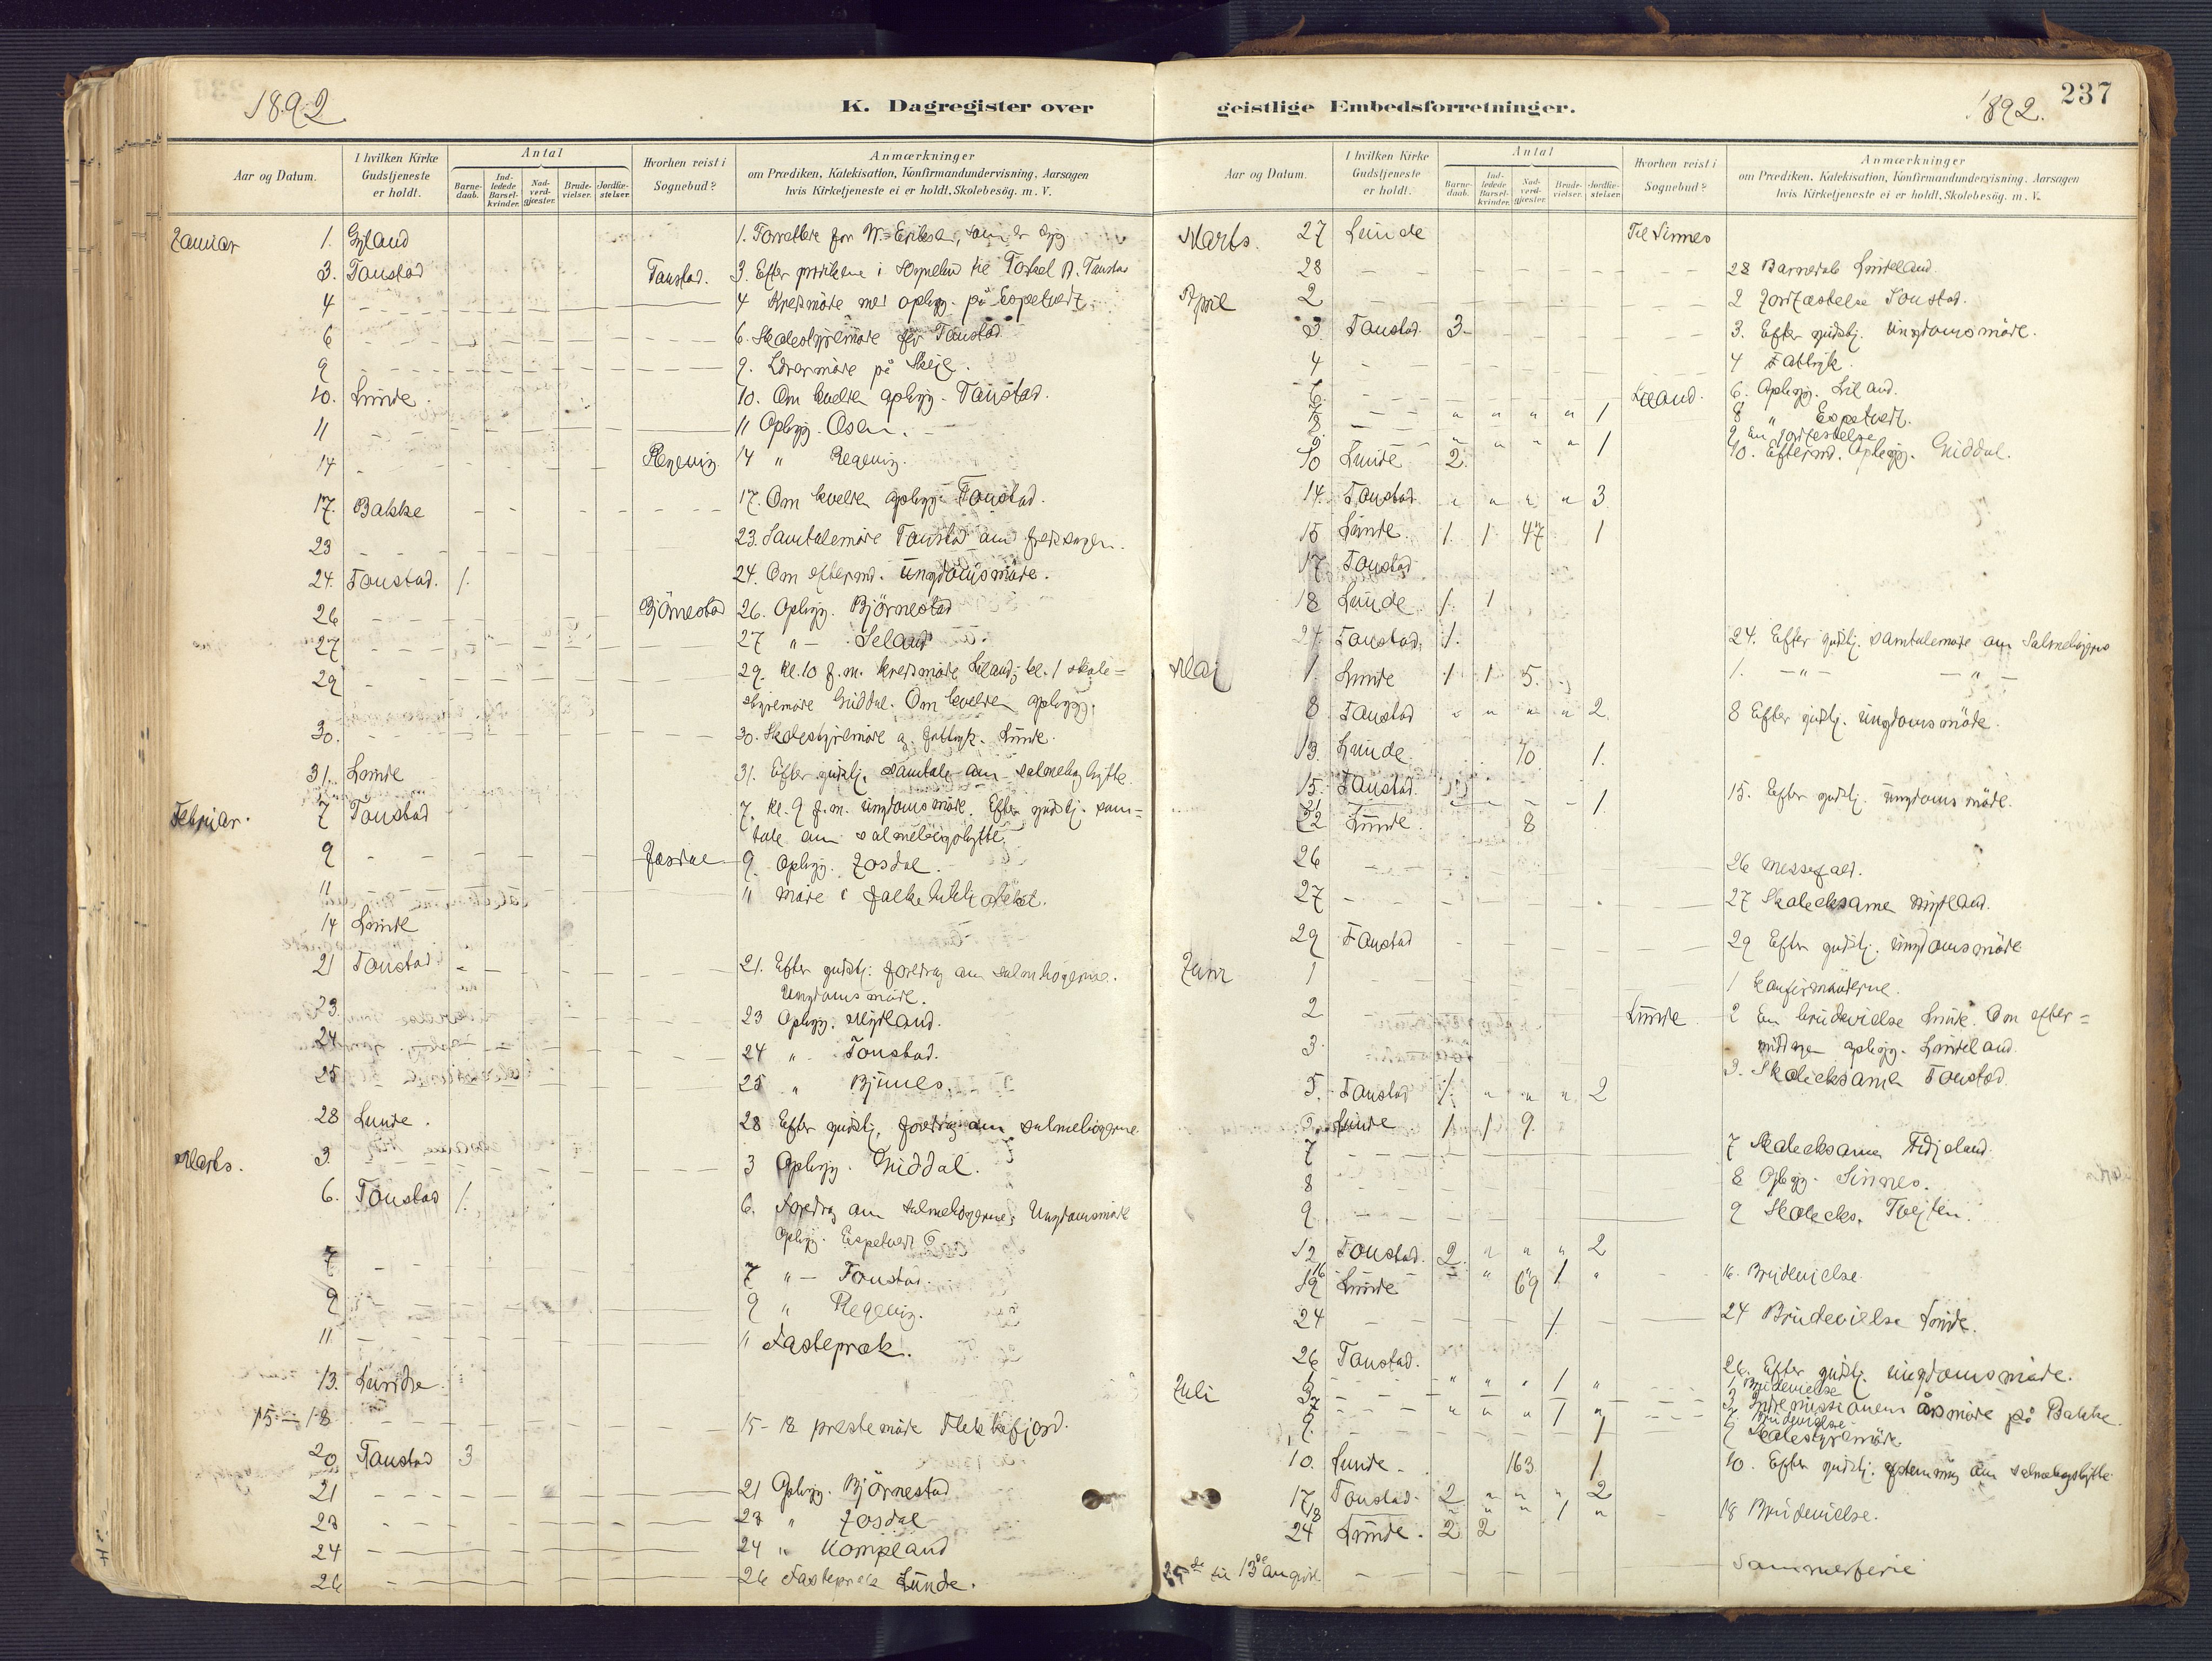 1892
K. Dagregister over
Aar og Datum.
I hvilken Kirke Gudstjeneste er holdt.
Antal
Barnedaab.
Indledede Barselkvinder.
Nadverdgjæster.
Brudevielser.
Jordfæstelser.
Hvorhen reist i Sognebud?
Anmærkninger
om Prædiken, Katekisation, Konfirmandundervisning, Aarsagen
hvis Kirketjeneste ei er holdt, Skolebesög. m. V.
Januar 1. Gyland 1. Forrettere for N. Eriksen, som er syg
3. Tonstad Tonstad. 3. Efter prædiken i sognebud til Torkel A. Tonstad
4 4 Kredsmöde med opbygg. på Espetvedt.
6 6. Skolestyremöde for Tonstad
9 9. Lærermöde på Skeje.
10. Lunde. 10. Om kvelden opbygg. Tonstad.
11 11 Opbygg. Osen.
14 Regevig 14 " Regevig.
17. Bakke 17. Om kvelden opbygg. Tonstad.
23 23. Samtalemöde Tonstad om fredssagen.
24. Tonstad. 1. 24. Om efterm. ungdomsmöde.
26 Björnestad 26. Opbygg. Björnestad
27 27 " Seland
29 29. kl. 10 f.m. kredsmöde Liland; kl. 1 skole=
styremöde Guddal. Om kvelden opbygg.
30. 30. Skolestyremöde og fattigk. Lunde.
31. Lunde 31. Efter gudstj. samtale om salmebogbytte.
Februar. 7 Tonstad 7. kl. 9 f.m. ungdomsmöde. Efter gudstj. sam=
tale om salmebogsbytte.
9 Josdal 9. Opbygg. Josdal.
11 11 möde i folkebibliotheket.
14 Lunde
21 Tonstad 21. Efter gudstj. foredrag om salmebögerne.
Ungdomsmöde.
23. 23 Opbygg. Mydland.
24 24 " Tonstad.
25 25 " Bjunes.
28 Lunde. 28 Efter gudstj. foredrag om salmebögerne
Marts. 3. 3 Opbygg. Guddal.
6. Tonstad 1. 6. Foredrag om salmebögerne; Ungdomsmöde
Opbygg. Espetvedt
7 7 " Tonstad.
9 9 " Regevig.
11 11 Fastepræk.
13. Lunde.
15-18 15-18 prestemöde Flekkefjord.
20 Tonstad 3
21 21 Opbygg. Björnestad
23 23 " Josdal
24 24 " Kompland
26 26 Fastepræk Lunde.
geistlige Embedsforretninger.
1892. 237
Aar og Datum.
I hvilken Kirke Gudstjeneste er holdt.
Antal
Barnedaab.
Indledede Barselkvinder.
Nadverdgjæster.
Brudevielser.
Jordfæstelser.
Hvorhen reist i Sognebud?
Anmærkninger
om Prædiken, Katekisation, Konfirmandundervisning, Aarsagen
hvis Kirketjeneste ei er holdt, Skolebesög. m. V.
Marts. 27 Lunde Til Sinnes
28 28 Barnedaab Lindeland.
April 2 2 Jordfæstelse Tonstad.
3 Tonstad. 3 3. Efter gudstj. ungdomsmöde.
4 4 Fattigk.
6. Liland. 6. Opbygg. Liland.
8. " " " " 1 8 " Espetvedt.
9 " " " " 1 9 En jordfestelse
10 Lunde 2. 10. Efterm. Opbygg. Guddal.
14. Tonstad " " " " 3
15 Lunde 1. 1 47 1
17 Tonstad
18 Lunde 1. 1
24 Tonstad. 1. 24. Efter gudstj. samtalemöde om Salmebögerne
Maj 1. Lunde 1 1 5. 1. - " - - " -
8 Tonstad " " " " 2. 8 Efter gudstj. ungdomsmöde.
13. Lunde 70 1.
15. Tonstad. 15. Efter gudstj. ungdomsmöde.
21 1.
22 Lunde. 8
26 26 messefald.
27 27 Skoleeksamen Mydland.
29 Tonstad 29 Efter gudstj. ungdomsmöde
Juni 1 1 konfirmanterne.
2 Lunde 2 En brudevielse Lunde. Om efter=
middagen opbygg. Lindeland.
3 3. Skoleeksamen Tonstad.
5. Tonstad 1. " " " 2
6. Lunde 1 1 9.
7 7 Skoleeksamen Fidjeland.
8 8 Opbygg. Sinnes.
9. 9 Skoleeks. Tvejten.
12 Tonstad. 2. " " " 2
16 " 1 " 16. Brudevielse.
19 Lunde 69
24 1. 24 Brudevielse Lunde.
26 Tonstad. 26. Efter gudstj. ungdomsmöde.
Juli 1 " " " 1 " 1 Brudevielse
3 3. Indremissionens årsmöde på Bakke.
7 " " " 1 " 7. Brudevielse
9. 1 9 Skolestyremöde
10. Lunde 163 1. 10. Efter gudstj. afstemning om salmebogsbytte
17 Tonstad 2 " " " 2
18 " " " 1 " 18 Brudevielse.
24 Lunde. 2 2
25de til 13de august Sommerferie